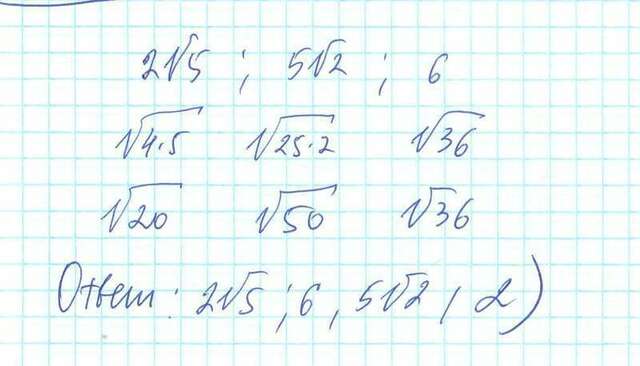 2√5 ; 5√2 ; 6
√4·5 √25·2 √36
√20 √50 √36
Ответ: 2√5 ; 6 , 5√2 , 2)